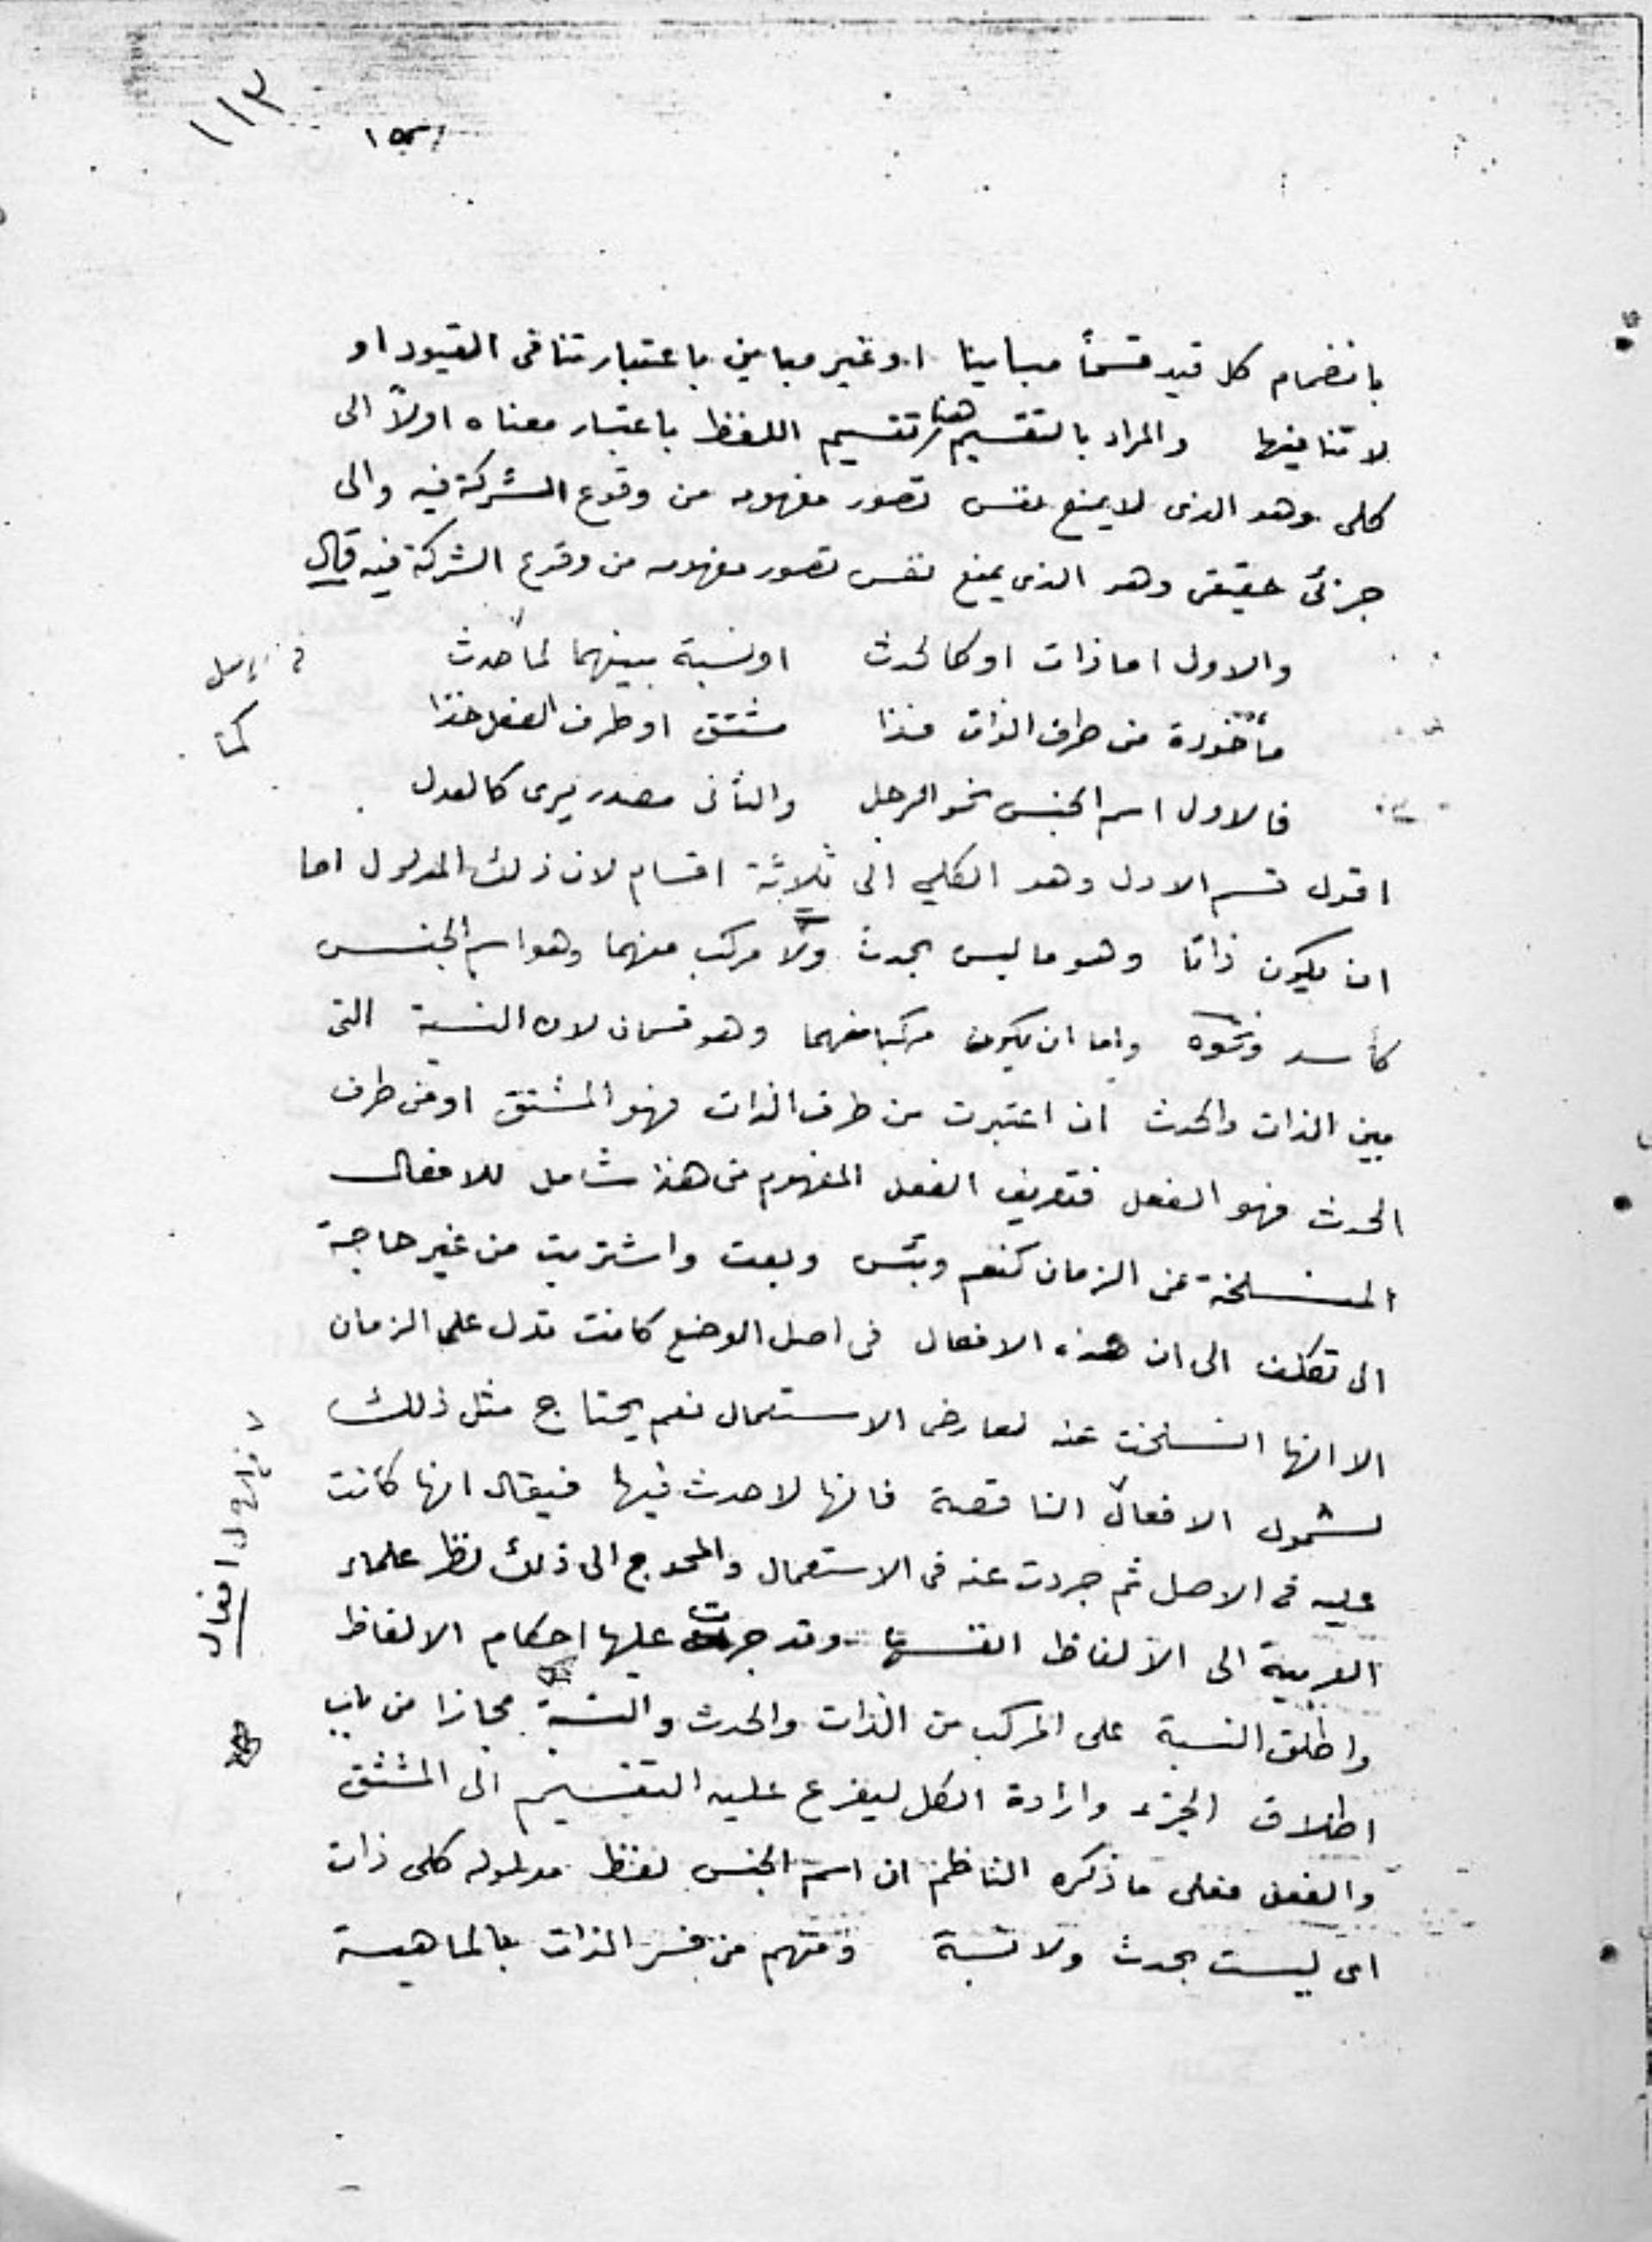 ١١٣
بانضمام كل قيد قسماً مباينا او غير مباين باعتبار تنافى القيود او
لا تنافيها والمراد بالتقسيم هنا تقسيم اللفظ باعتبار معناه اولاً الى
كلى وهو الذى لا يمنع نفس تصور مفهومه من وقوع الشركة فيه والى
جزئى حقيقى وهو الذى يمنع نفس تصور مفهومه من وقوع الشركة فيه قال
والاول اما ذات او كالحدث او نسبة بينهما لما حدث
مأخوذة من طرف الذات فذا مشتق او طرف الفعل خذا
فالاول اسم الجنس نحو الرجل والثانى مصدر يرى كالعدل
اقول قسم الاول وهو الكلي الى ثلاثة اقسام لان ذلك المدلول اما
ان يكون ذاتا وهو ما ليس بحدث ولا مركب منهما وهو اسم الجنس
كأسد ونحوه واما ان يكون مركبا منهما وهو قسمان لان النسبة التى
بين الذات والحدث ان اعتبرت من طرف الذات فهو المشتق او من طرف
الحدث فهو الفعل فتعريف الفعل المفهوم من هذا شامل للافعال
المنسلخة عن الزمان كنعم وبئس وبعت واشتريت من غير حاجة
الى تكلف الى ان هذه الافعال فى اصل الوضع كانت تدل على الزمان
الا انها انسلخت عنه لعارض الاستعمال نعم يحتاج مثل ذلك
لشمول الافعال الناقصة فانها لا حدث فيها فيقال انها كانت
عليه فى الاصل ثم جردت عنه فى الاستعمال والمحوج الى ذلك نظر علماء
العربية الى الألفاظ انفسها وقد جرت عليها احكام الالفاظ
واطلق النسبة على المركب من الذات والحدث والنسبة مجازا من باب
اطلاق الجزء وارادة الكل ليفرع عليه التقسيم الى المشتق
والفعل فعلى ما ذكره الناظم ان اسم الجنس لفظ مدلوله كلى ذات
اى ليست بحدث ولا نسبة ومنهم من فسر الذات بالماهية